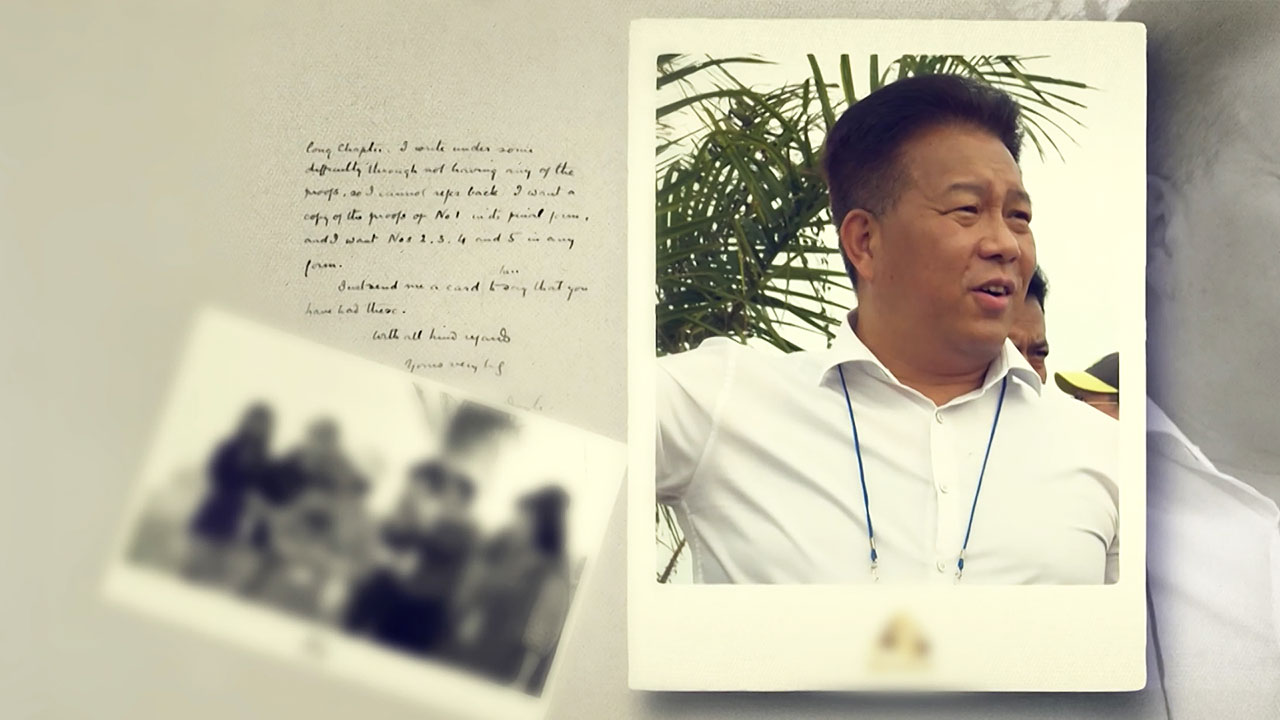 long Chapter. I write under some
difficulty through not having any of the
proofs, so I cannot refer back. I want a
copy of the proofs of No 1 in its final form,
and I want Nos 2. 3. 4 and 5 in any
form.
send me a card to say that you
have had these.
With all kind regards
Yours very